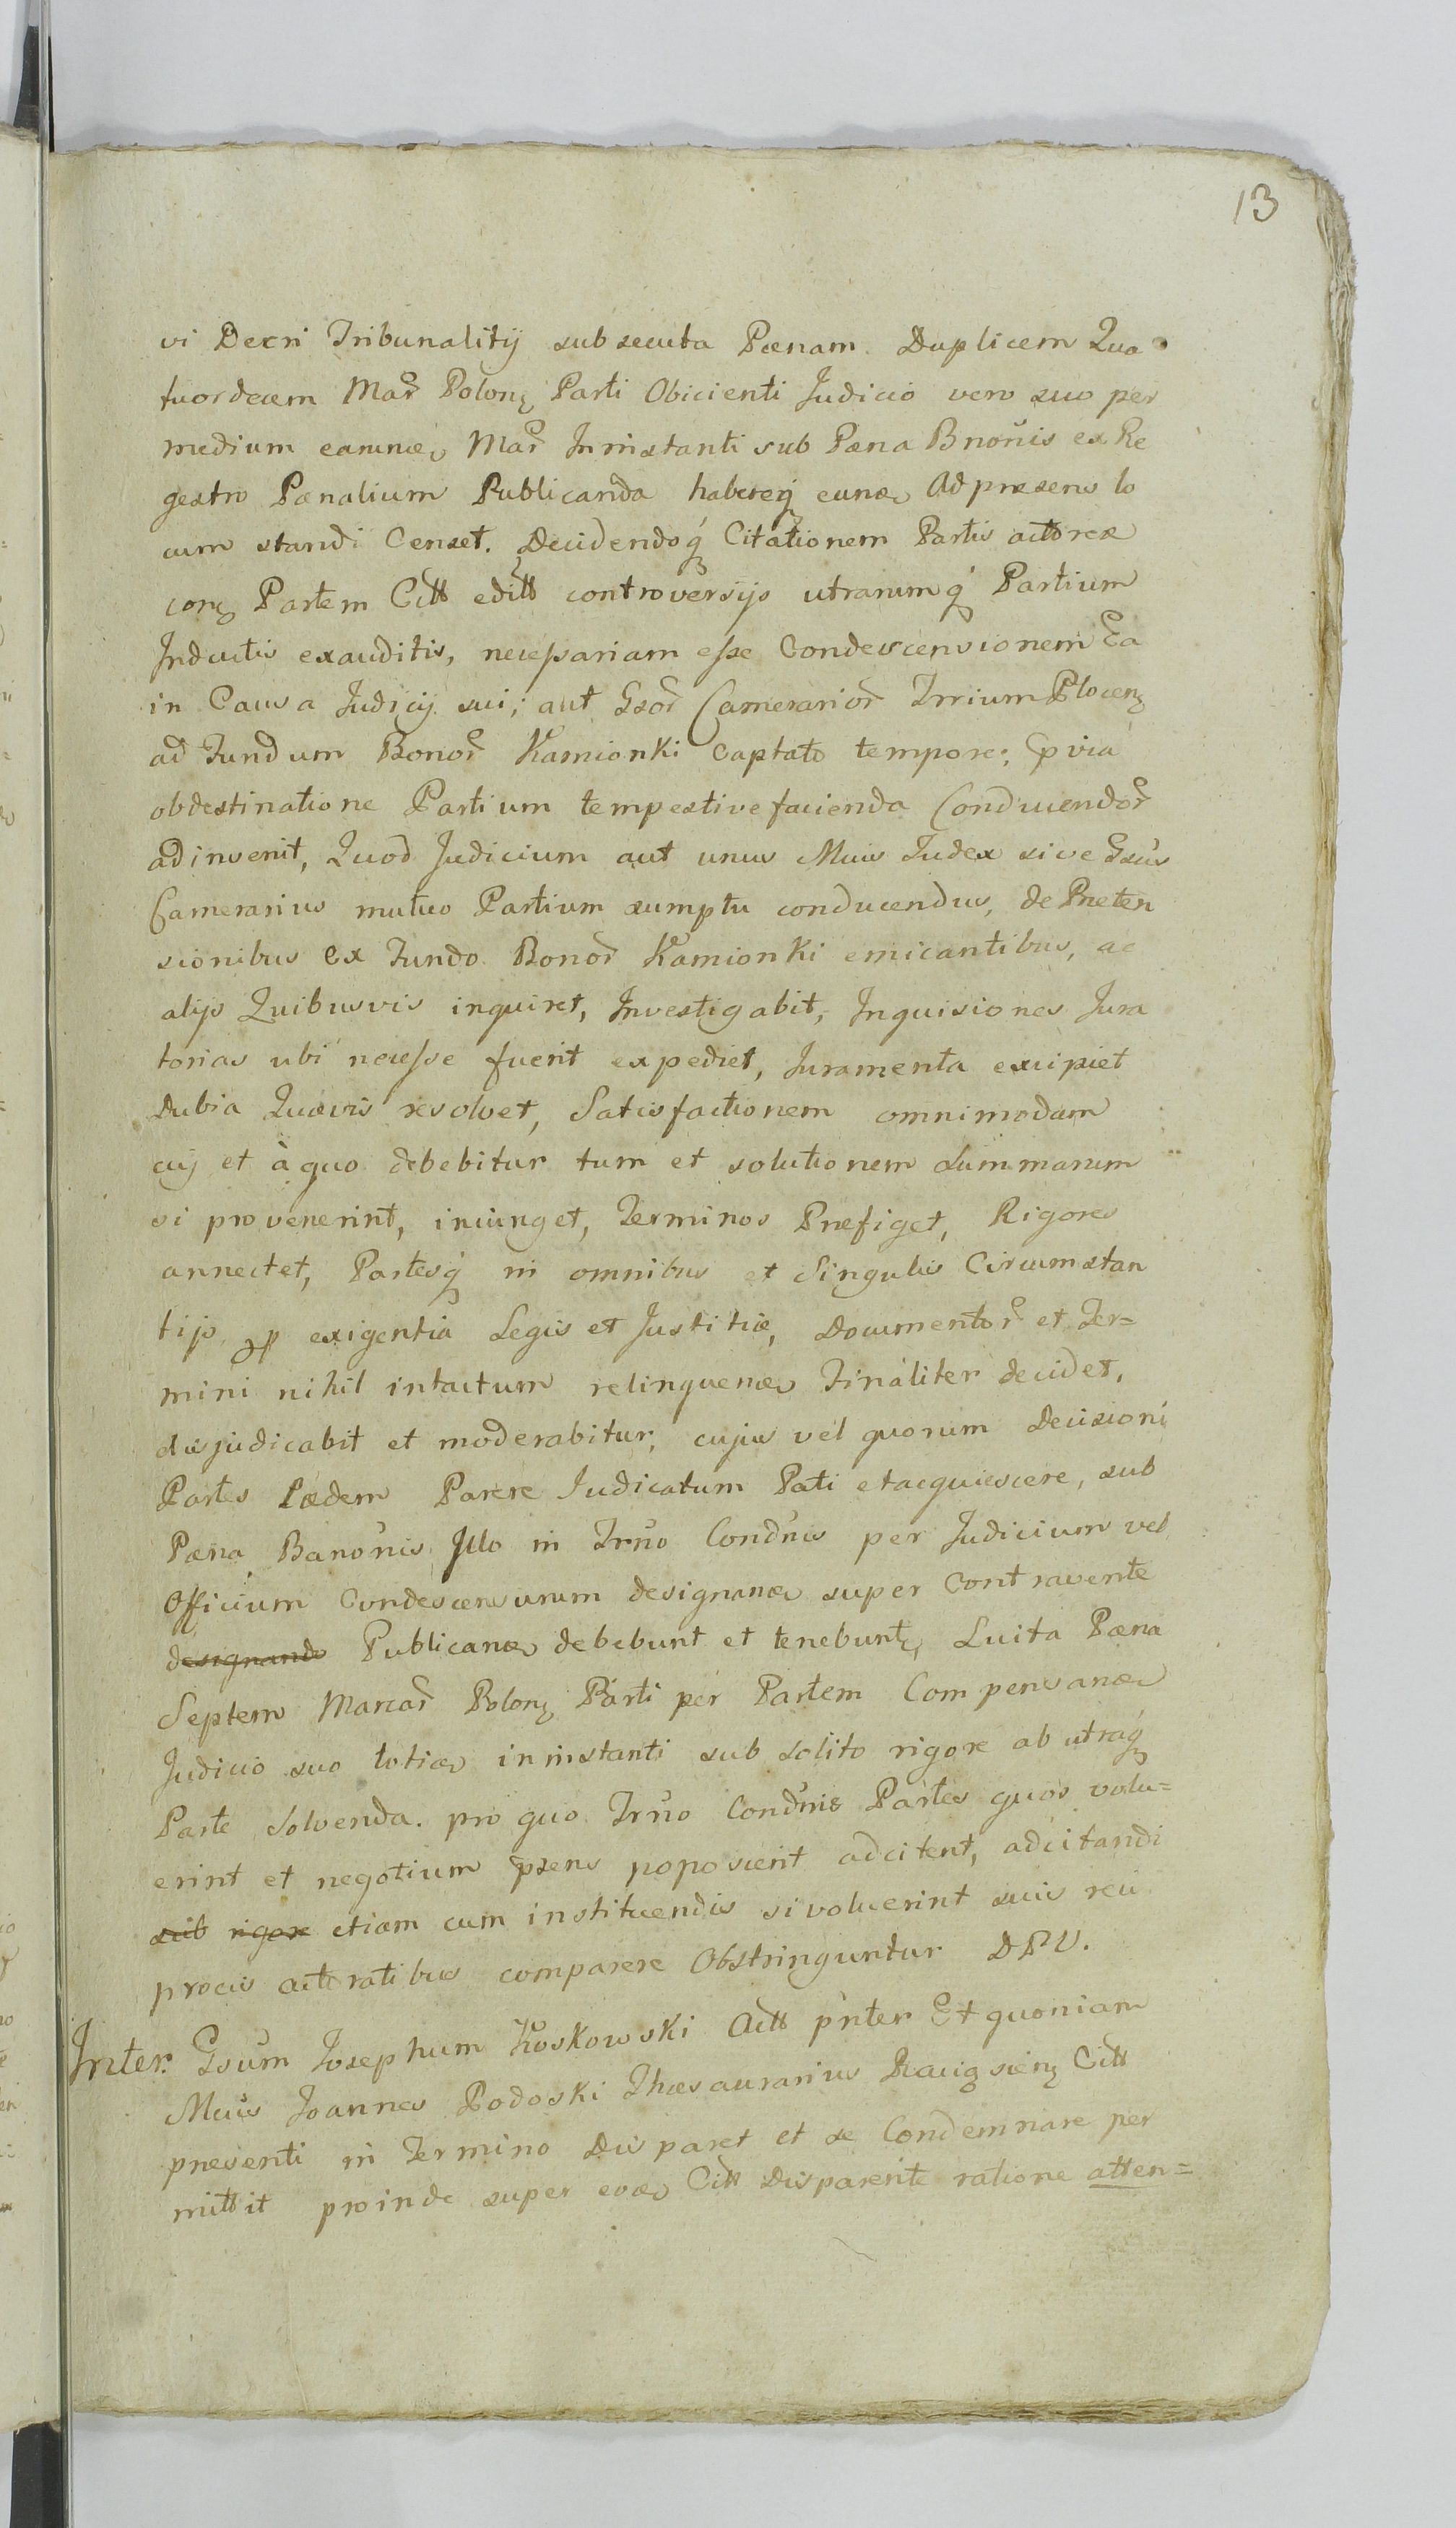 13
vi Decri Tribunalitij subsecuta Pœnam Duplicem Qua
tuordecem Mar Polonę Parti Obicienti Judicio vero suo per
medium eamnæ Mar Ininstanti sub Pæna Bnonis ex Re
gestro Pœnalium Publicanda habereq́ Ad præsens lo
cum standi Censet. Decidendoq́ Citationem Partis actoreæ
conę Partem Citt editt controversijs utrarumq́ Partium
Inductis exauditis, necessariam esse Condescensionem Ea
in Causa Judicij sui; aut Gsor Camerarior Trrium Plocenę
ad Fundum Bonor Kamionki captato tempore; Pvia
obdestinatione Partium tempestive facienda Conducendor
ad invenit, Quod Judicium aut unus Mcus Judex sive Gsus
Camerarius mutuo Partium sumptu conducendus, de Præten
sionibus Ex Fundo Bonor Kamionki emicantibus, ac
alijs Quibusvis inquiret, Investigabit, Inquisiones Jura
torias ubi necesse fuerit expediet, Juramenta excipiet
Dubia Quævis resolvet, Satisfactionem omnimodam
cuj et à quo debebitur tum et solutionem summarum
si provenerint, iniunget, Terminos Præfiget, Rigores
annectet, Partesq́ in omnibus et Singulis Circumstan
tijs p exigentia Legis et Justitiæ, Documentor et Ter=
mini nihil intactum relinquenæ Finaliter decidet,
disjudicabit et moderabitur, cujus vel quorum Decisioni
Partes Eædem Parere Judicatum Pati et acquiescere, sub
Pæna Banonis Illo in Trno Condnis per Judicium vel
Officium Condescensurum designanæ super Contravente
designando Publicanæ debebunt et tenebuntę, Luita Pæna
Septem Marcar Polonę Parti per Partem Compensanæ
Judicio suo totiæ in instanti sub solito rigore ab utraq́
Parte Solvenda. pro quo Trno Condnis Partes quos volu=
erint et negotium psens poposcerit adcitent, adcitandi
sub rigore etiam cum instituendis si voluerint suis reci
procis actoratibus comparere Obstringuntur DPV.
Inter Gsum Josephum Koskowski Actt pnter Et quoniam
Mcus Joannes Podoski Thæsaurarius Citt
presenti in Termino Disparet et se Condemnare per
mittit proinde super eoæ Citt Disparente ratione atten=